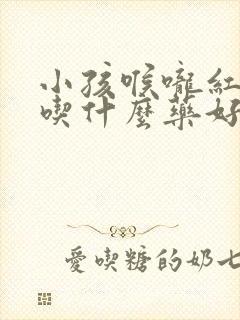 小孩喉嚨紅
喫什麼藥好
愛喫糖的奶七